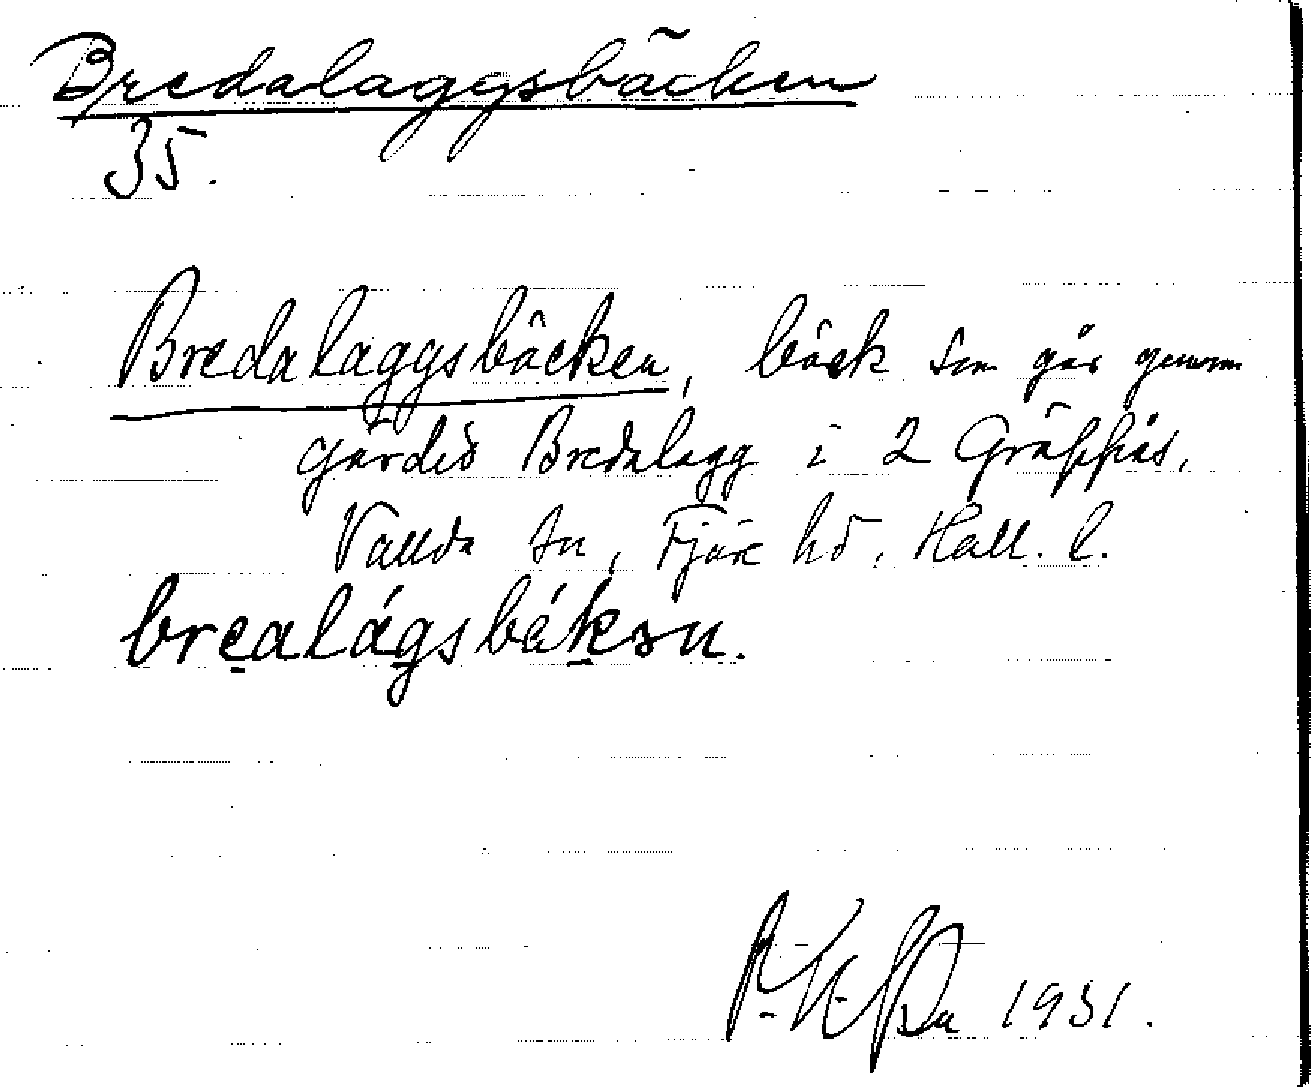 Bredalaggsbäcken
35.
Bredalaggsbäcken, bäck som går genom
gärdet Bredalagg i 2 Gräppås,
Vallda sn, Fjäre hd, Hall. l.
brealágsbákən.
1931.